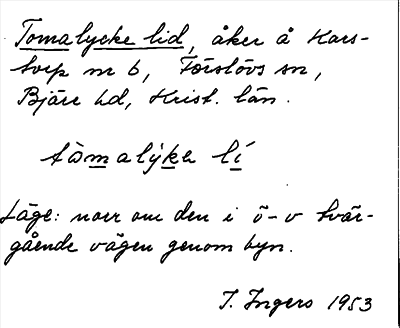 Tomalycke lid, åker å Kars-
torp nr 6, Förslövs sn,
Bjäre hd, Krist. län.
tòmalýka lí
Läge: norr om den i ö-v tvär-
gående vägen genom byn.
I. Ingers 1953